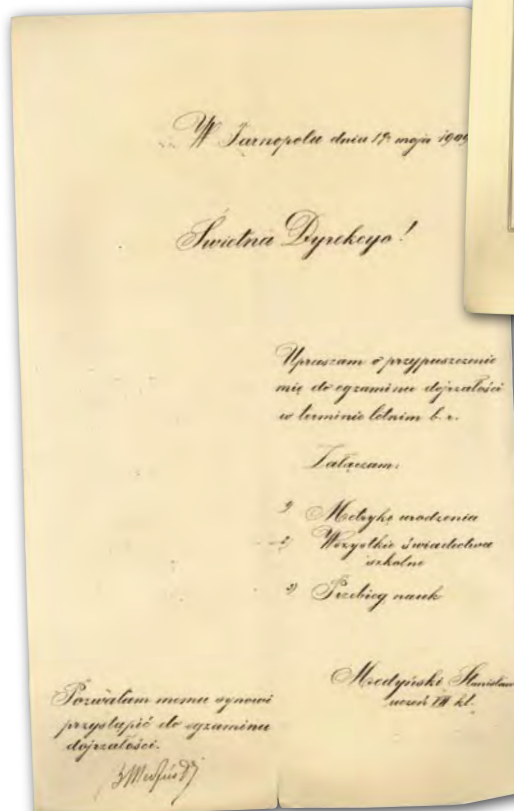 W Tarnopolu dnia 17. maja 1909
Świetna Dyrekcyo!
Upraszam o przypuszczenie
mię do egzaminu dojrzałości
w terminie letnim b. r.
Załączam:
1) Metrykę urodzenia
2) Wszystkie świadectwa
szkolne
3) Przebieg nauk
Medyński Stanisław
uczeń VIII kl.
Pozwalam memu synowi
przystąpić do egzaminu
dojrzałości.